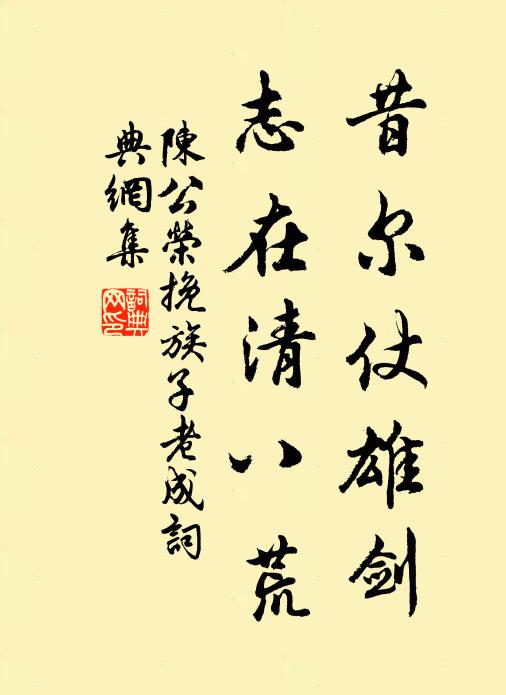 昔尔仗雄剑
志在清八荒
陳公榮挽族子老成詞
典網集
詞典
网印